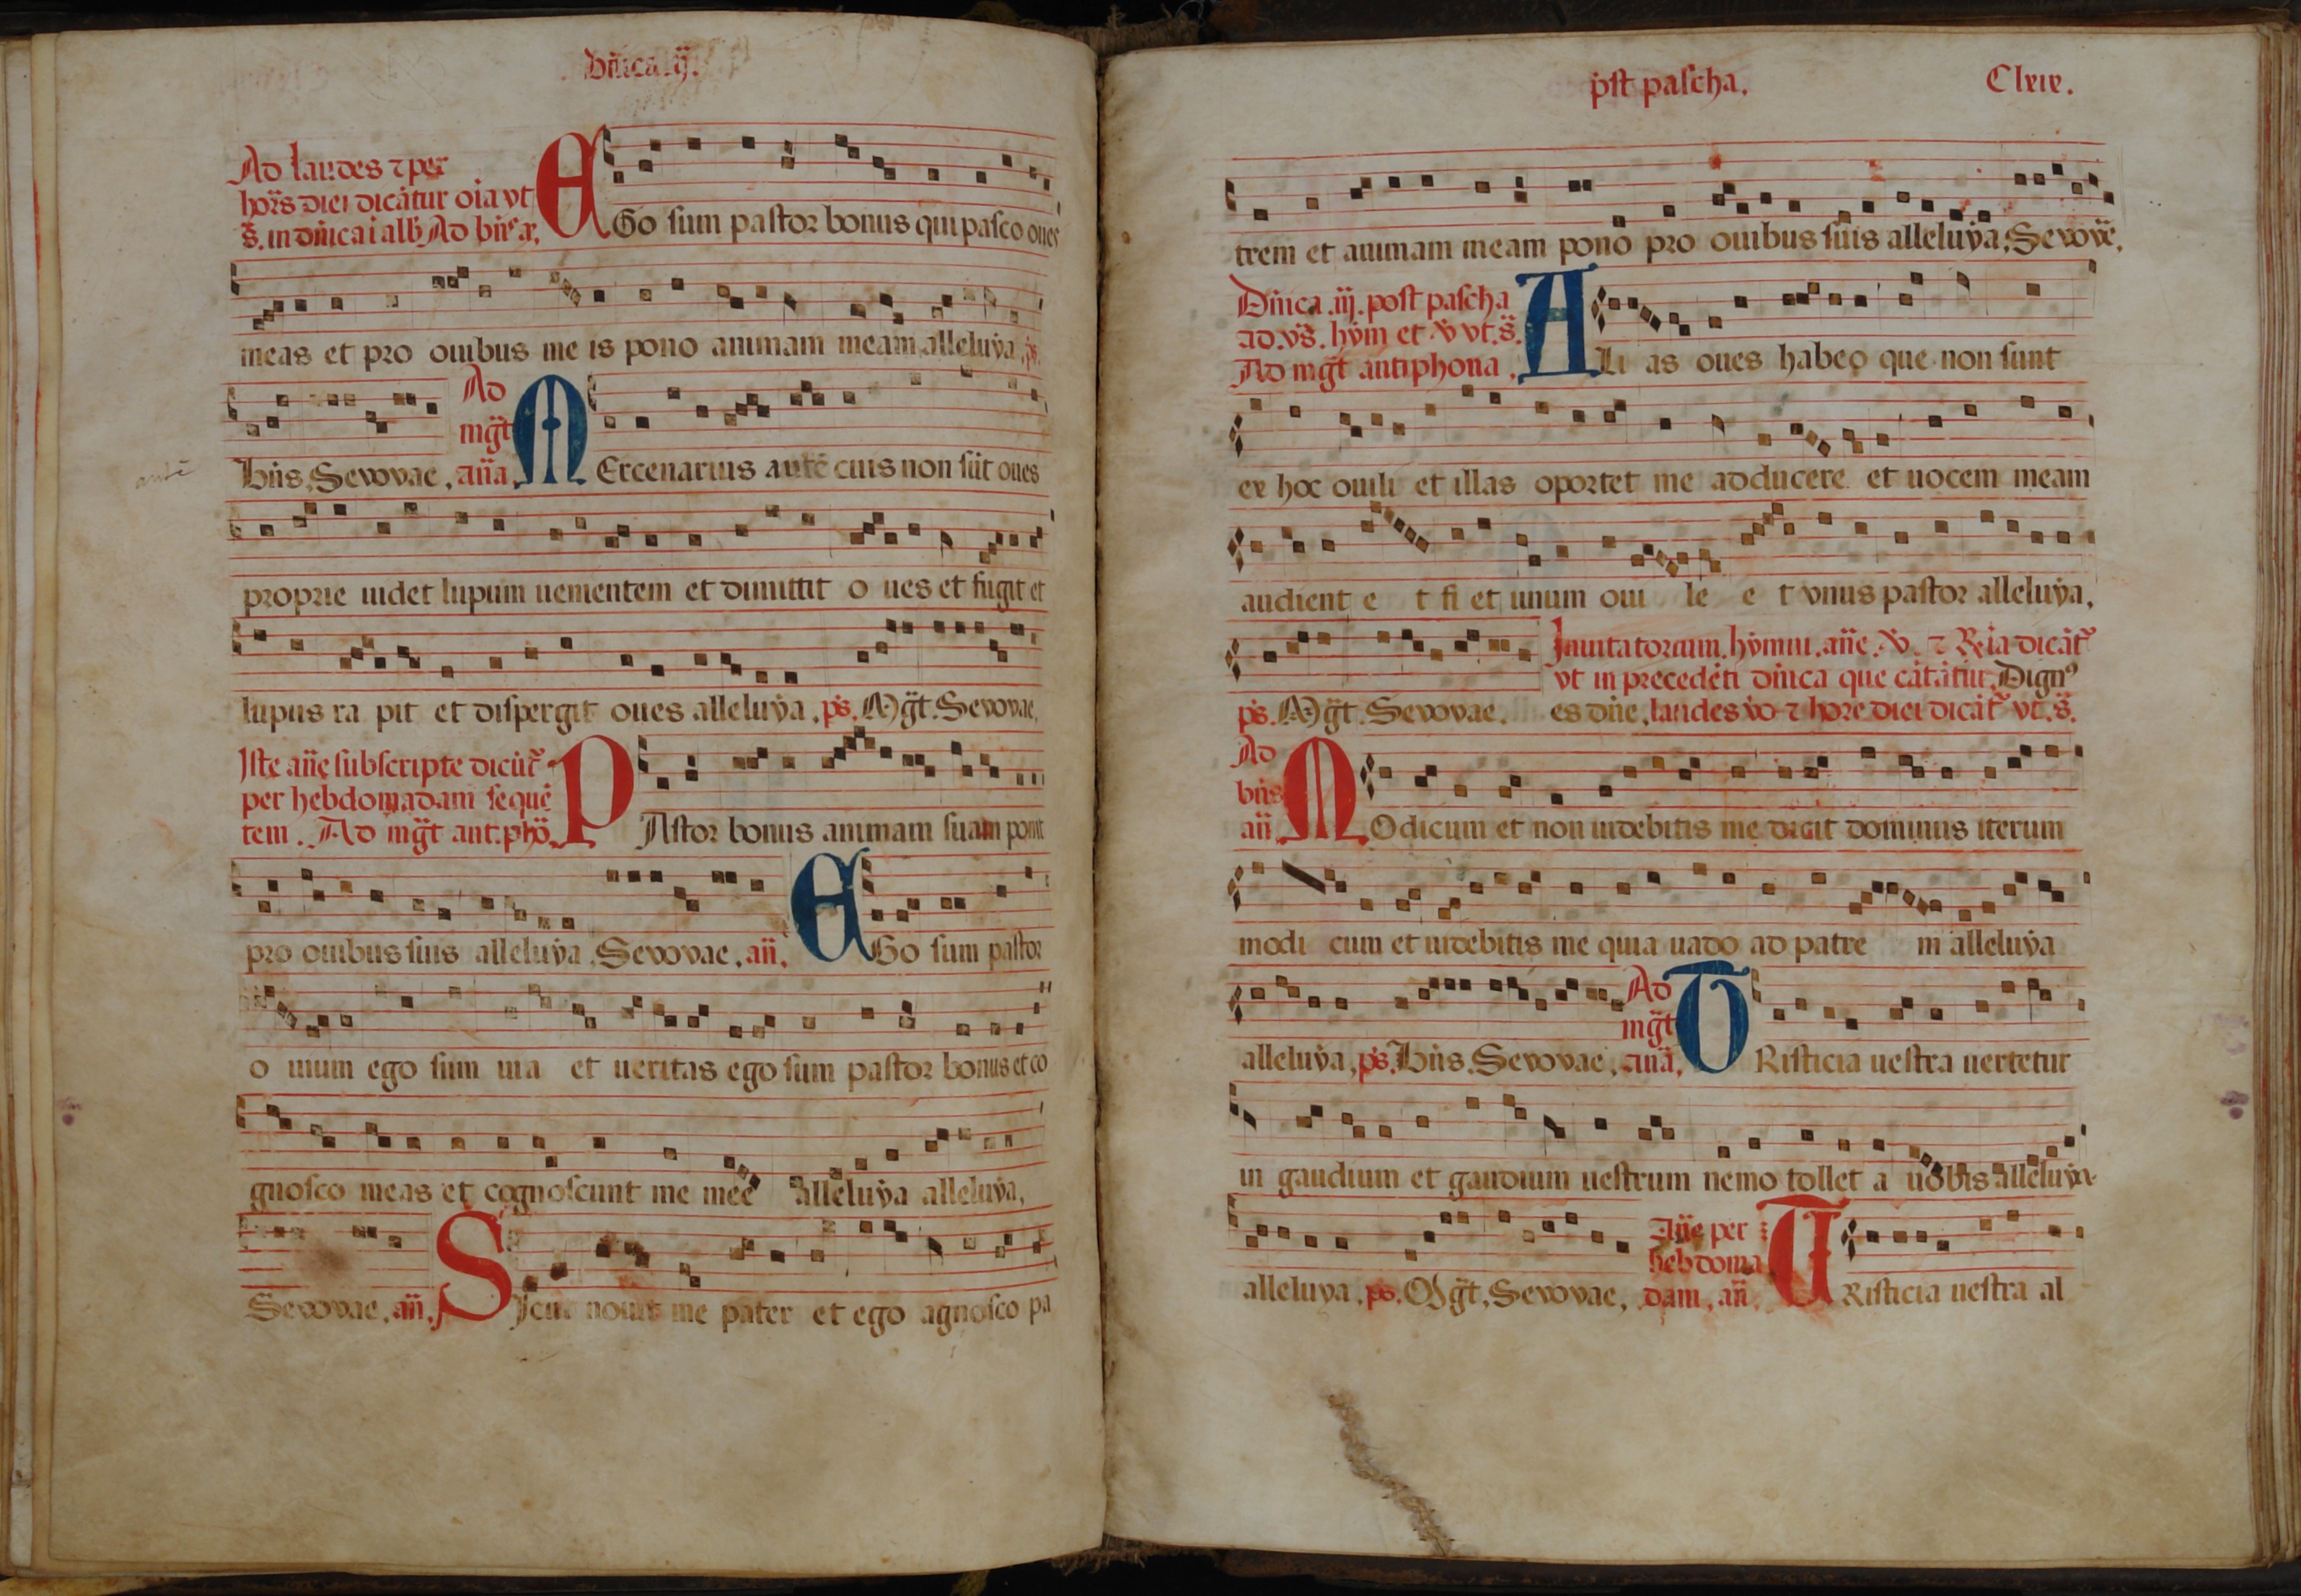 Dnica ij.
Ad laudes ⁊ per
hors diei dicātur oīa vt
s̄. in dnica i alb̄. Ad bn̄s a.
EGo sum pastor bonus qui pasco oues
meas et pro ouibus me is pono animam meam alleluya, ps.
Bn̄s, Seuouae, Ad mgt̄ an̄a, MErcenarius autē cuius non sūt oues
autē
proprie uidet lupum uenientem et dimittit o ues et fugit et
lupus ra pit et dispergit oues alleluya, ps. Mgt̄. Seuouae,
Iste an̄e subscripte dicūt̄
per hebdomadam sequē
tem. Ad mgt̄ ant.phō
PAstor bonus animam suam ponit
pro ouibus suis alleluya. Seuouae, an̄, EGo sum pastor
o uium ego sum uia et ueritas ego sum pastor bonus et co
gnosco meas et cognoscunt me mee alleluya alleluya,
Seuouae, an̄, SIcut nouit me pater et ego agnosco pa
pst pascha.
Clxix.
trem et animam meam pono pro ouibus suis alleluya, Seuouē,
Dnica .iij. post pascha
ad .vs̄. hym et v̄ vt. s̄.
Ad mgt̄ antiphona,
ALi as oues habeo que non sunt
ex hoc ouili et illas oportet me adducere et uocem meam
audient e t fi et unum oui le e t vnus pastor alleluya,
Inuitatorium. hymni. an̄e. v̄. ⁊ R̄ia dicāt̄
vt in precedēti dnica que cātātur, Dign⁹
ps. Mgt̄. Seuouae. es dn̄e, laudes vo ⁊ hore diei dicāt̄ vt. s̄.
Ad
bn̄s
an̄
MOdicum et non uidebitis me dicit dominus iterum
modi cum et uidebitis me quia uado ad patre m alleluya
alleluya, ps. Bn̄s. Seuouae, Ad mgt̄ an̄a, TRisticia uestra uertetur
in gaudium et gaudium uestrum nemo tollet a uobis alleluya
alleluya, ps. Mgt̄, Seuouae, An̄e per hebdoma dam, an̄ TRisticia uestra al